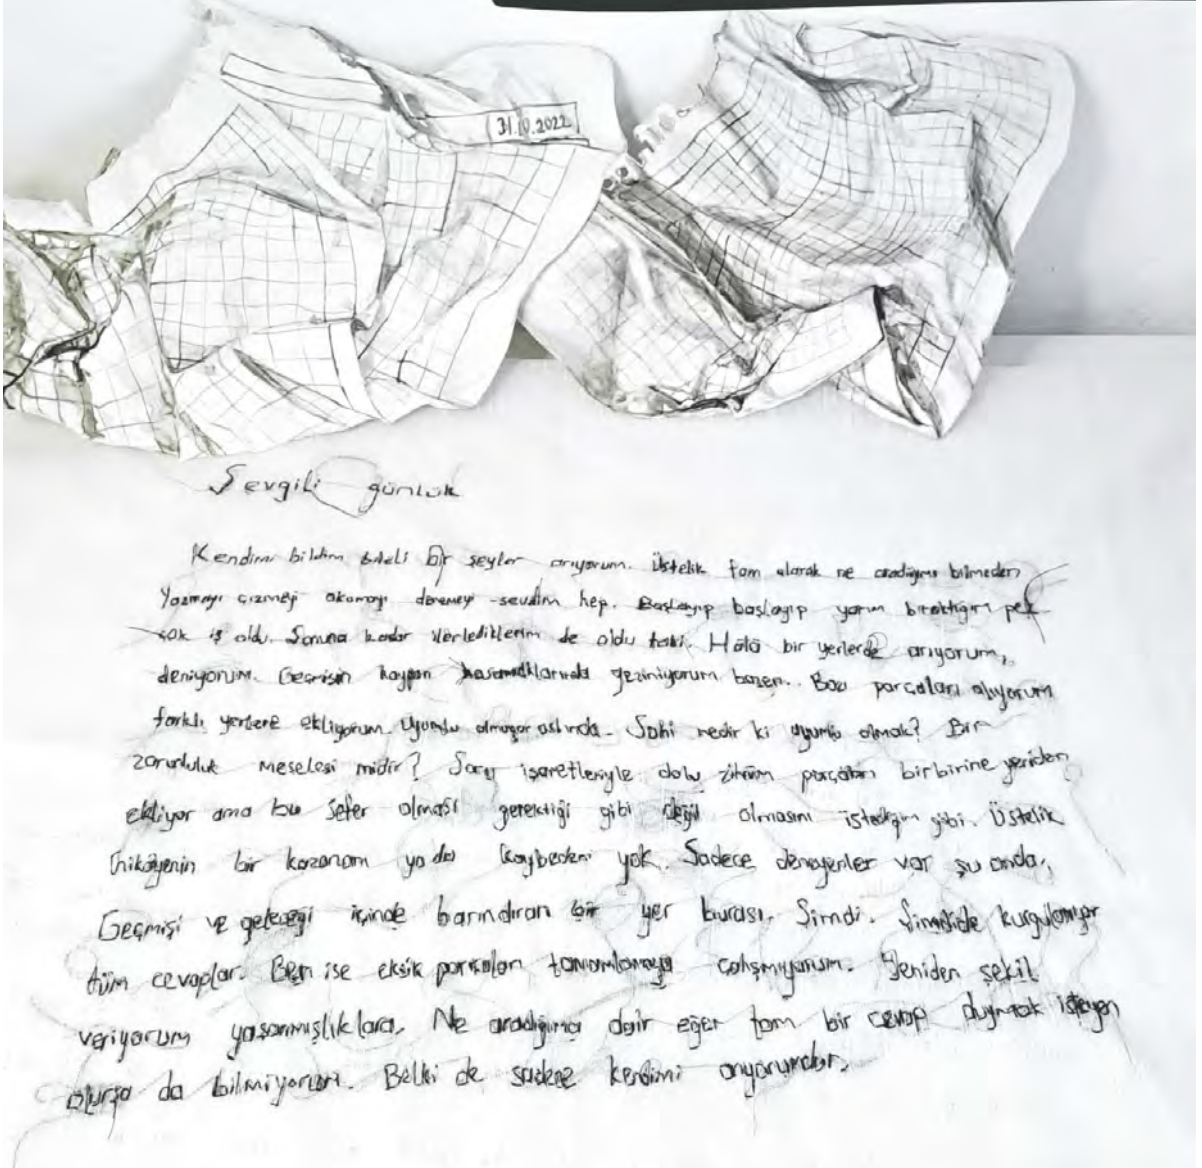 31.10.2022
Sevgili günlük
Kendimi bildim bileli bir şeyler arıyorum. Üstelik tam olarak ne aradığımı bilmeden
Yazmayı çizmeyi okumayı denemeyi sevdim hep. Başlayıp başlayıp yarım bıraktığım pek
çok iş oldu. Sonuna kadar ilerlediklerim de oldu tabi. Hâlâ bir yerlerde arıyorum,
deniyorum. Geçmişin kaygan basamaklarında geziniyorum bazen. Bazı parçaları alıyorum
farklı yerlere ekliyorum. Uyumlu olmuyor aslında. Sahi nedir ki uyumlu olmak? Bir
zorunluluk meselesi midir? Soru işaretleriyle dolu zihnim parçaları birbirine yeniden
ekliyor ama bu sefer olması gerektiği gibi değil olmasını istediğim gibi. Üstelik
hikâyenin bir kazananı ya da kaybedeni yok. Sadece deneyenler var şu anda.
Geçmişi ve geleceği içinde barındıran bir yer burası. Şimdi. Şimdide kurgulanıyor
tüm cevaplar. Ben ise eksik parçaları tamamlamaya çalışmıyorum. Yeniden şekil
veriyorum yaşanmışlıklara. Ne aradığıma dair eğer tam bir cevap duymak isteyen
olursa da bilmiyorum. Belki de sadece kendimi arıyorumdur.